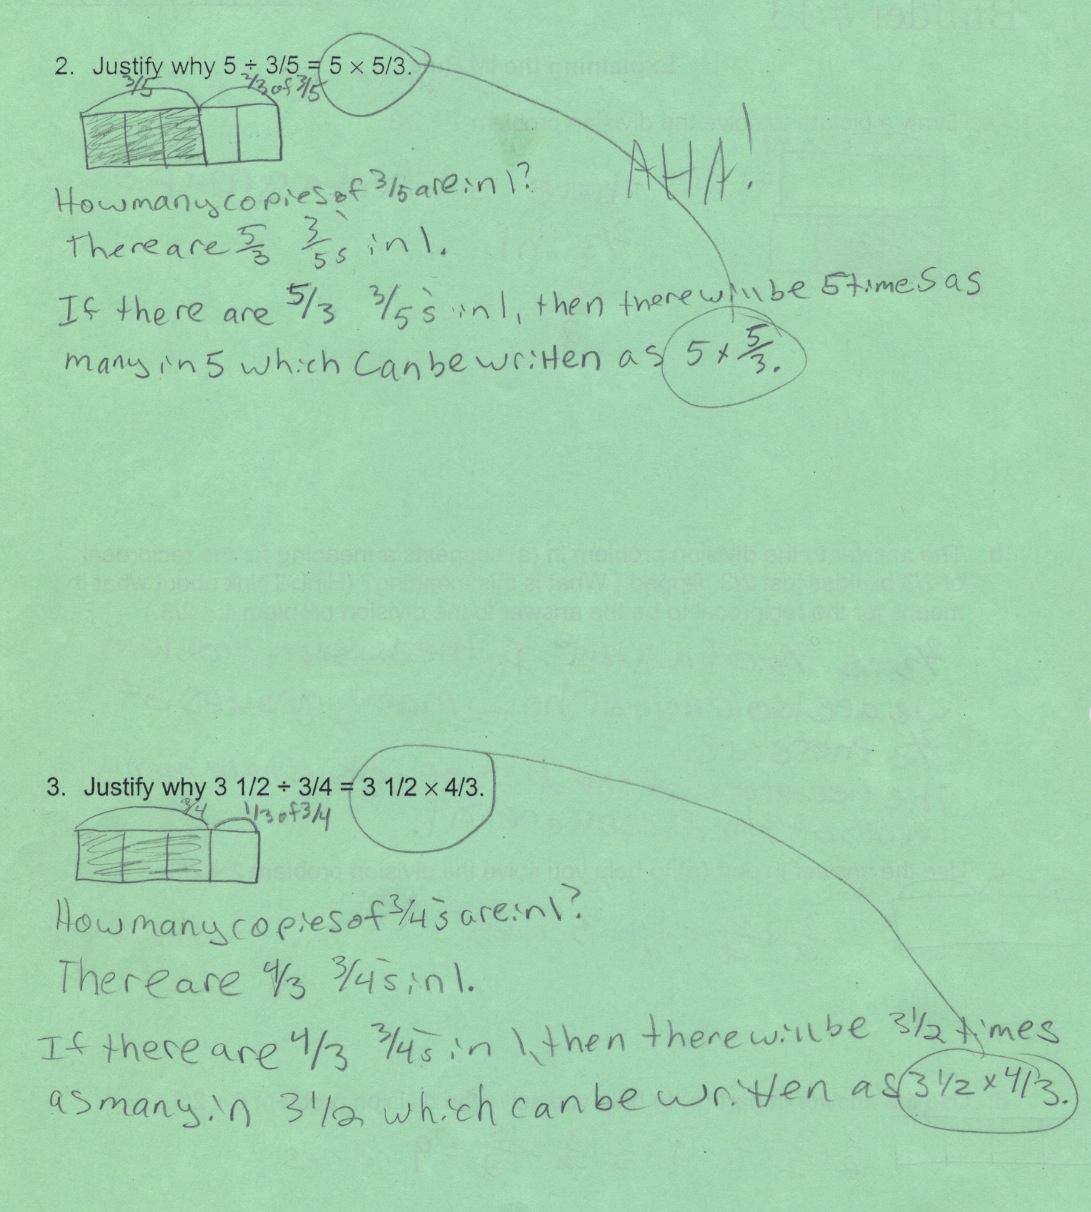 2. Justify why 5 ÷ 3/5 = 5 × 5/3.
3/5 2/3 of 3/5
AHA!
How many copies of 3/5 are in 1?
There are 5/3 3/5's in 1.
If there are 5/3 3/5's in 1, then there will be 5 times as
many in 5 which can be written as 5 × 5/3.
3. Justify why 3 1/2 ÷ 3/4 = 3 1/2 × 4/3.
3/4 1/3 of 3/4
How many copies of 3/4's are in 1?
There are 4/3 3/4's in 1.
If there are 4/3 3/4's in 1, then there will be 3 1/2 times
as many in 3 1/2 which can be written as 3 1/2 × 4/3.